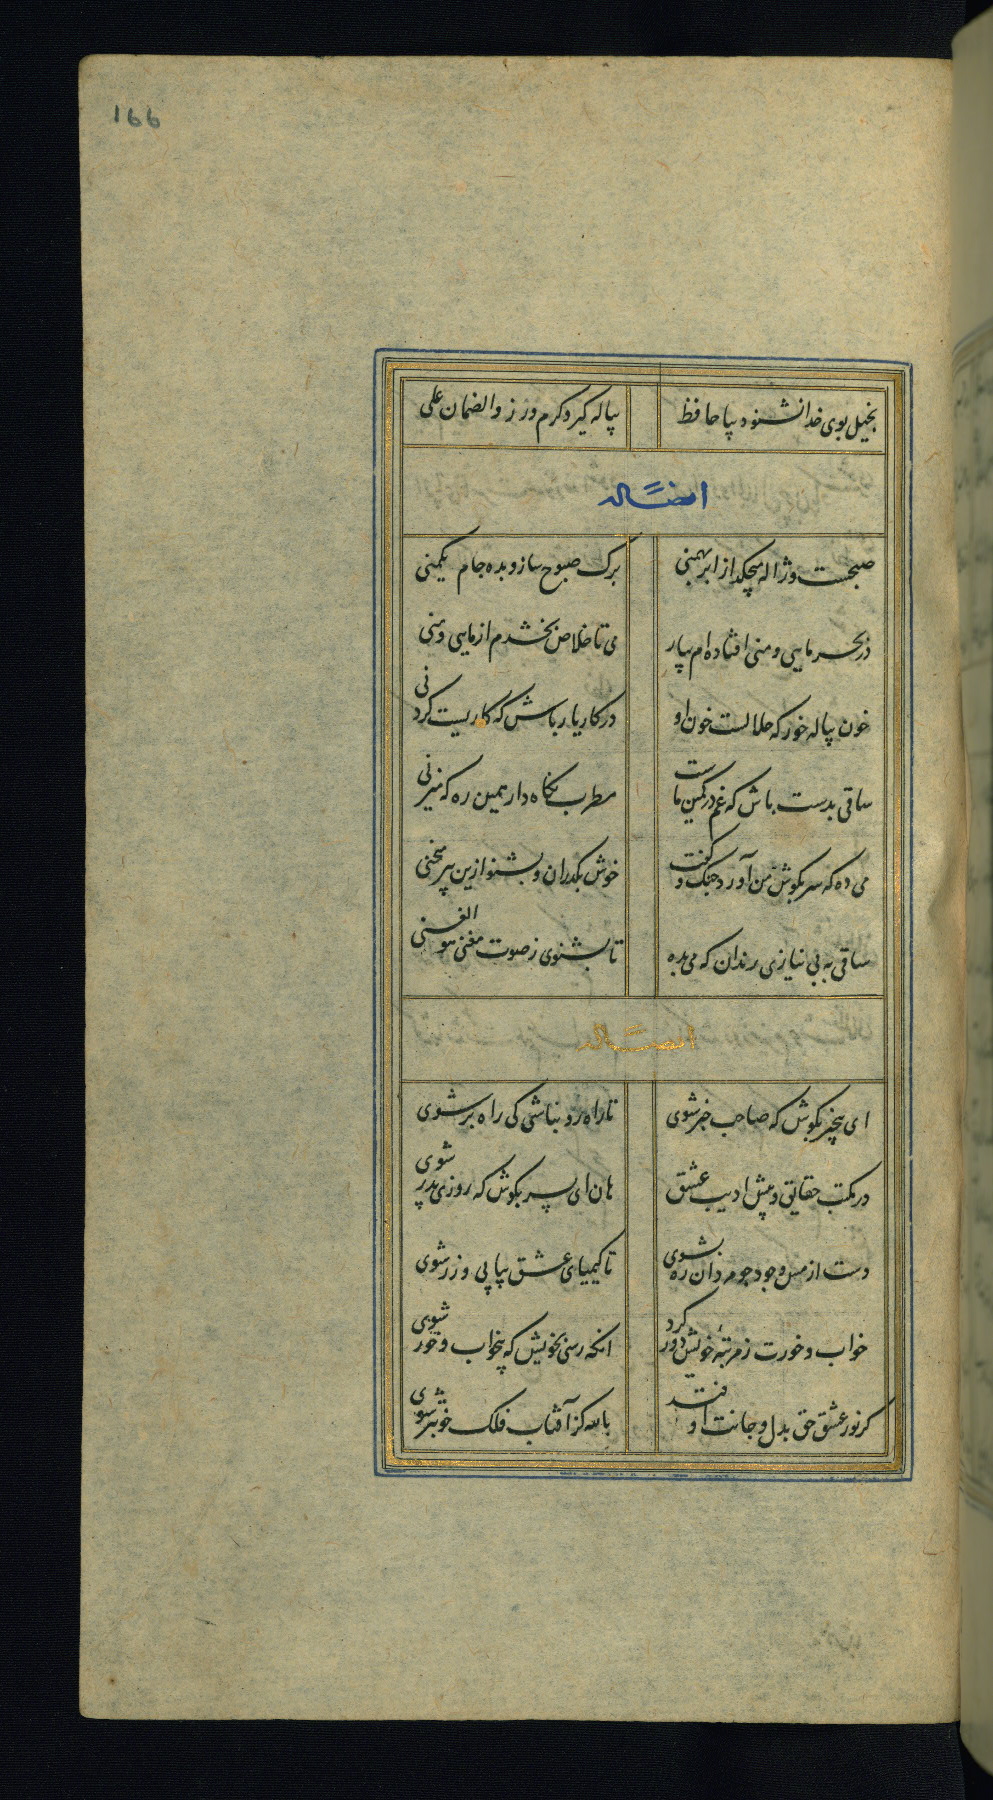 166
بخیل بوی خدا نشنود بیا حافظ پیاله گیر و کرم ورز والضمان علی
ایضاً له
صبحست و ژاله میچکد از ابر بهمنی برک صبوح ساز و بده جام یکمنی
در بحر مایی و منی افتاده ام بیار می تا خلاص بخشدم از مایی و منی
خون پیاله خور که حلالست خون او در کار یار باش که کاریست کردنی
ساقی بدست باش که غم در کمین ماست مطرب نکاه دار همین ره که میزنی
می ده که سر بکوش من آورد چنک و کفت خوش بکذران و بشنو ازین پیر منحنی
ساقی به بی نیازی رندان که می بده تا بشنوی ز صوت مغنی هو الغنی
ایضاً له
ای بیخبر بکوش که صاحب خبر شوی تا راه رو نباشی کی راه بر شوی
در مکتب حقایق و پیش ادیب عشق هان ای پسر بکوش که روزی پدر شوی
دست از مس وجود چو مردان ره بشوی تا کیمیای عشق بیابی و زر شوی
خواب و خورت ز مرتبهٔ خویش دور کرد انکه رسی بخویش که بیخواب و خور شوی
کر نور عشق حق بدل و جانت اوفتد بالله کز آفتاب فلک خوبتر شوی